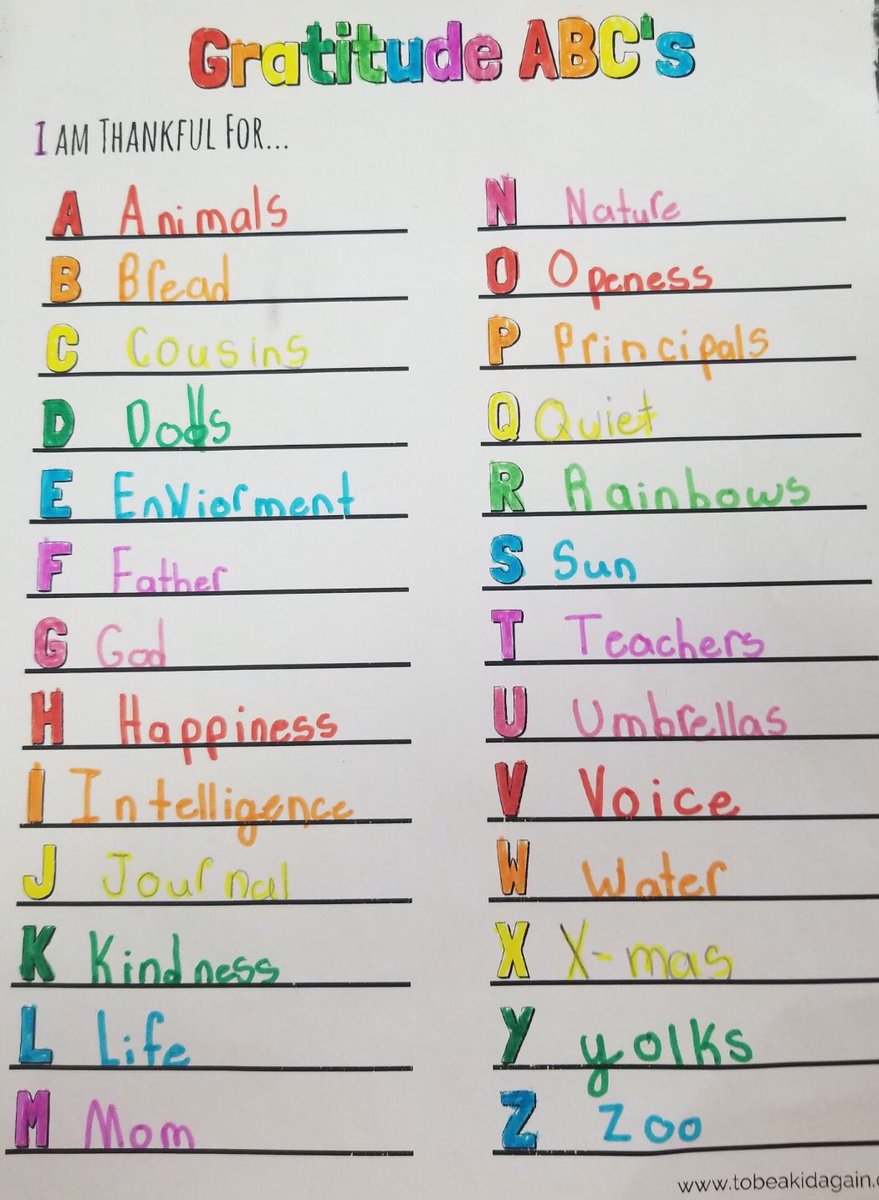 Gratitude ABC's
I AM THANKFUL FOR...
A Animals
B Bread
C Cousins
D Dolls
E Enviorment
F Father
G God
H Happiness
I Intelligence
J Journal
K Kindness
L Life
M Mom
N Nature
O Openess
P Principals
Q Quiet
R Rainbows
S Sun
T Teachers
U Umbrellas
V Voice
W Water
X X-mas
Y yolks
Z Zoo
www.tobeakidagain.c